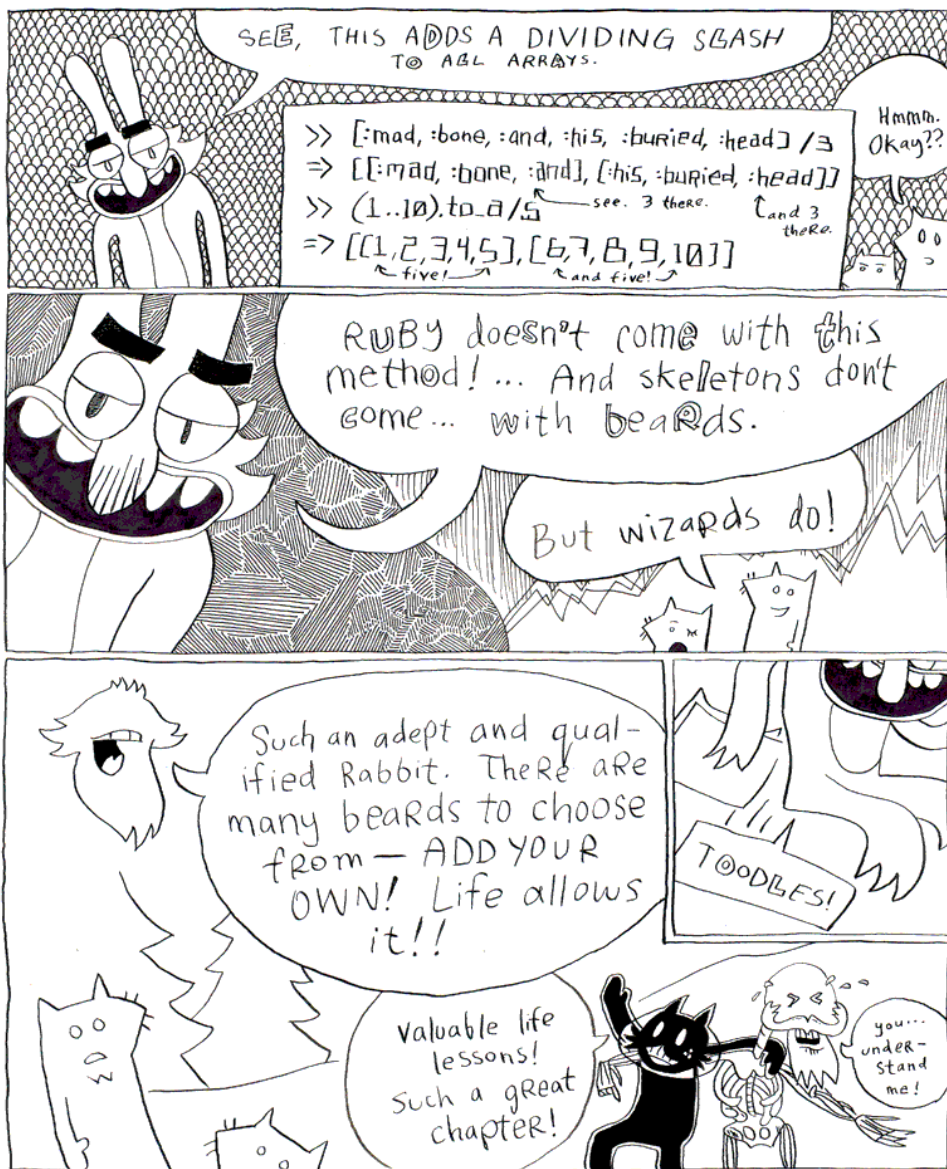 SEE, THIS ADDS A DIVIDING SLASH
TO ALL ARRAYS.
Hmmm.
Okay??
>> [:mad, :bone, :and, :his, :buried, :head] /3
=> [[:mad, :bone, :and], [:his, :buried, :head]]
see. 3 there.
and 3
there.
>> (1..10).to_a/5
=> [[1,2,3,4,5],[6,7,8,9,10]]
five!
and five!
RUBY doesn't come with this
method!... And skeletons don't
come... with beards.
But wizards do!
Such an adept and qual-
ified Rabbit. There are
many beards to choose
from — ADD YOUR
OWN! Life allows
it!!
TOODLES!
Valuable life
lessons!
Such a great
chapter!
you...
under-
stand
me!